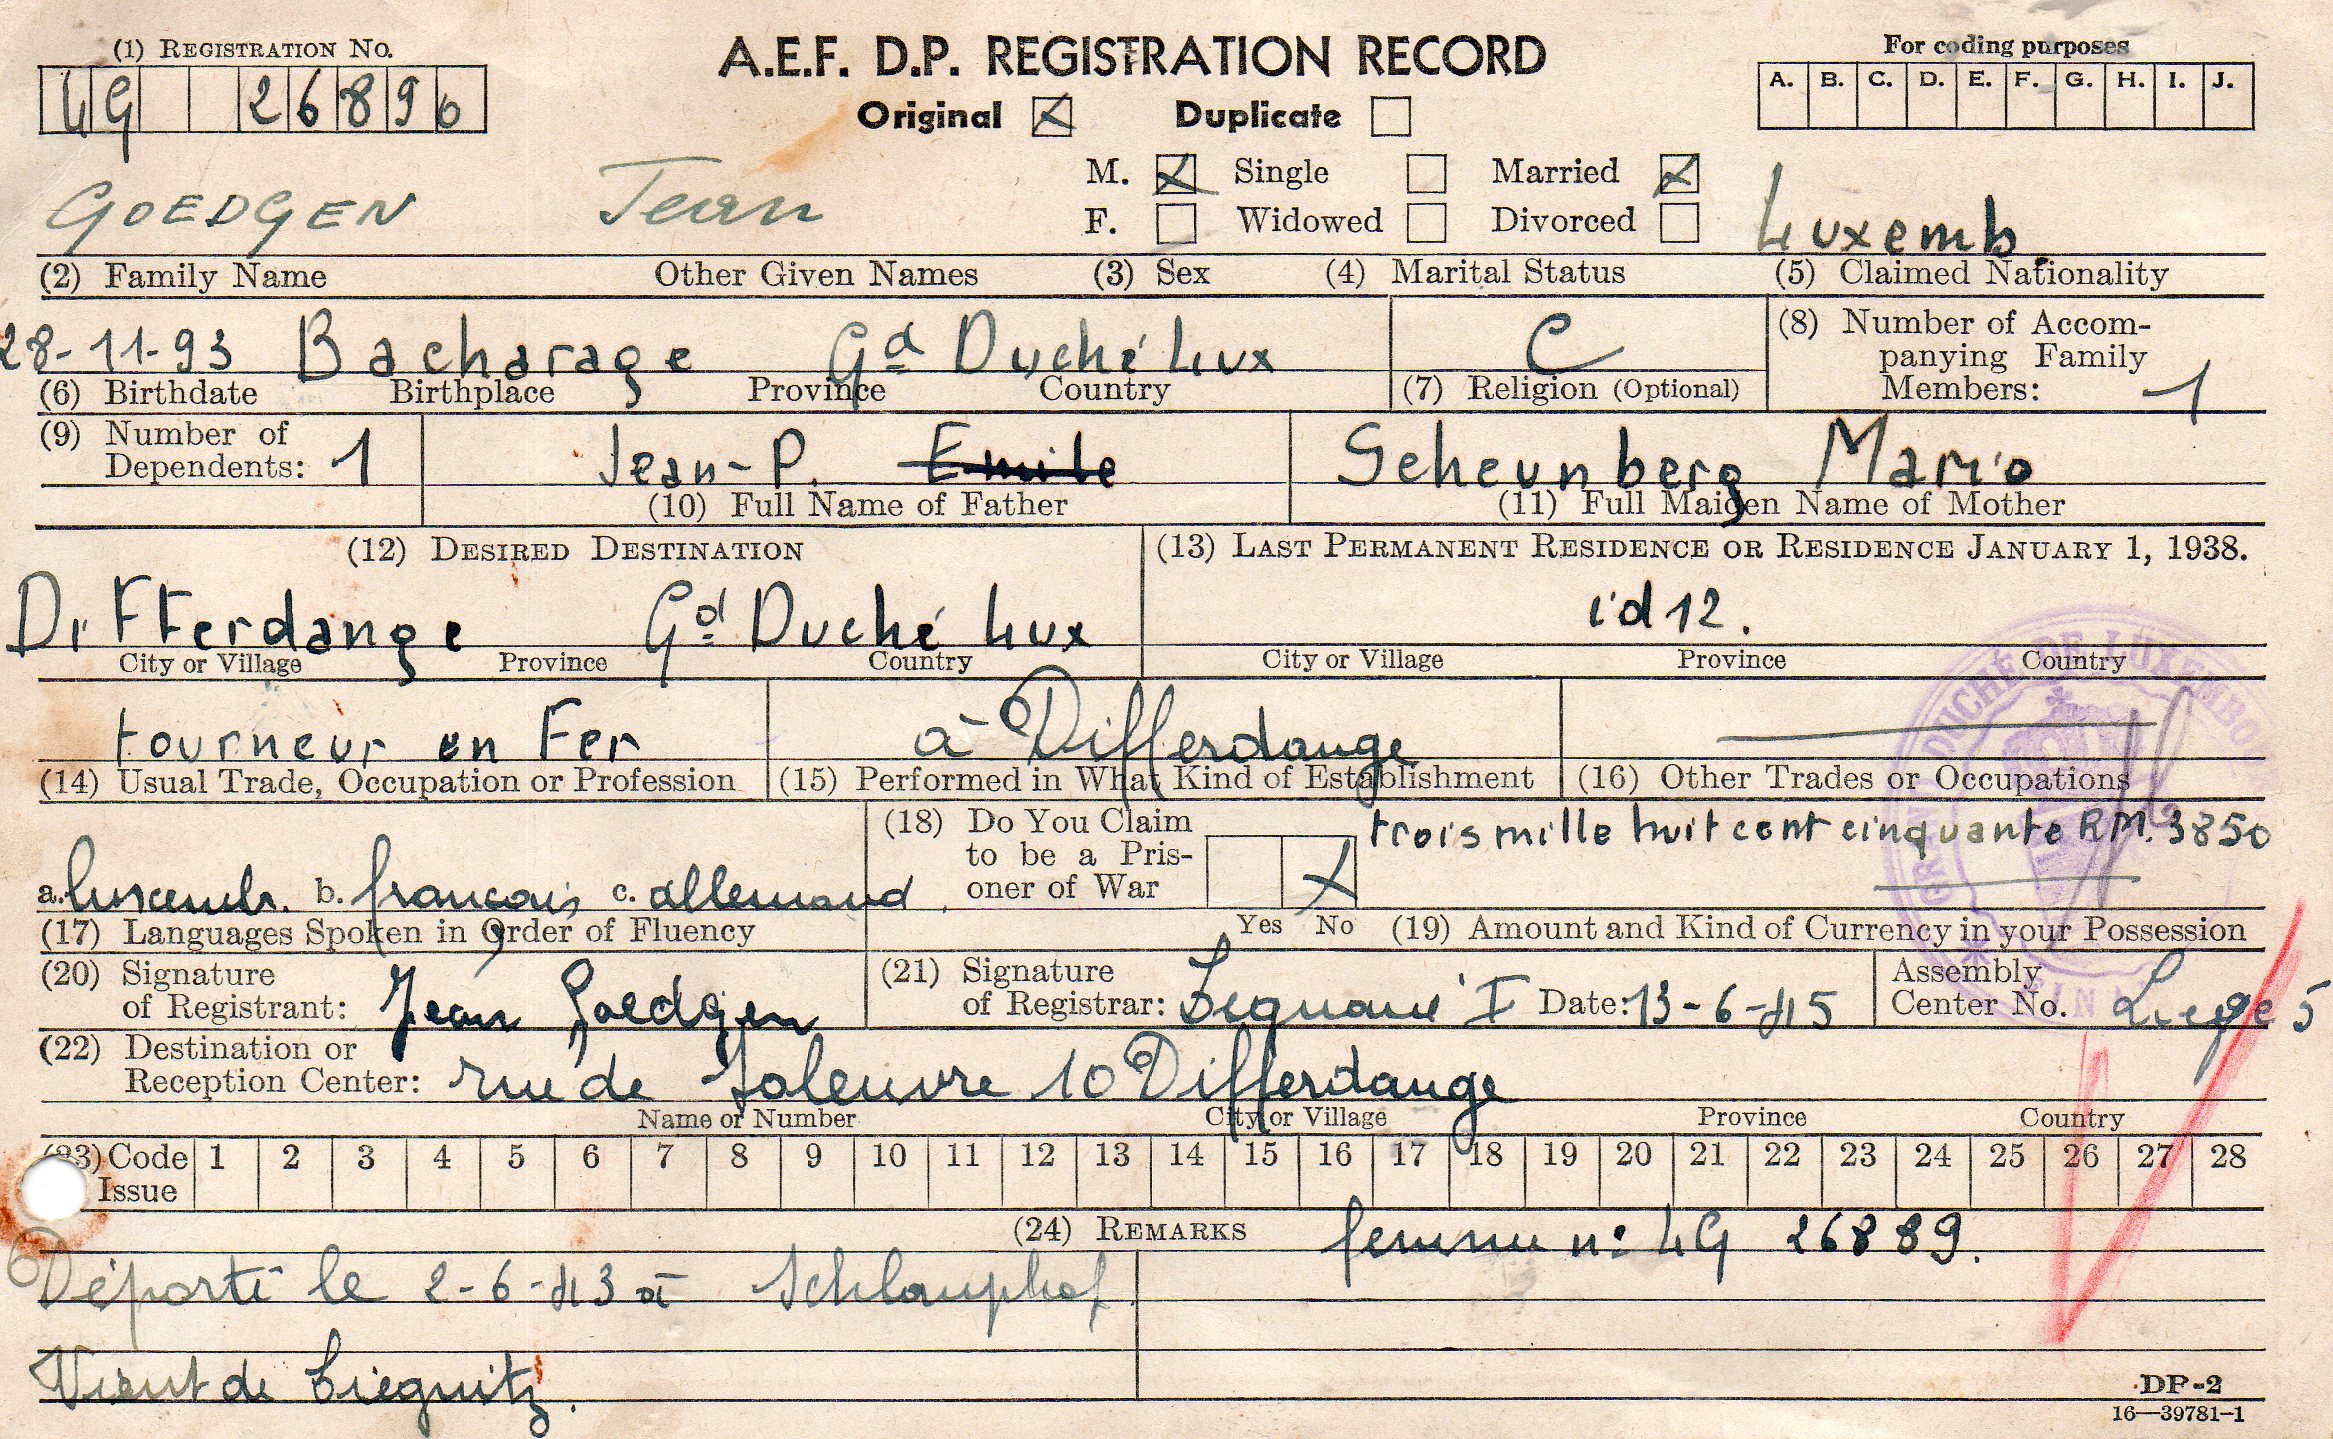 (1) REGISTRATION NO.
LG 26890
A.E.F. D.P. REGISTRATION RECORD
Original X Duplicate
For coding purposes
A. B. C. D. E. F. G. H. I. J.
M. X Single Married X
F. Widowed Divorced
GOEDGEN Jean Luxemb.
(2) Family Name Other Given Names (3) Sex (4) Marital Status (5) Claimed Nationality
28-11-93 Bacharage Gd Duché Lux C
(6) Birthdate Birthplace Province Country (7) Religion (Optional)
(8) Number of Accompanying Family Members: 1
(9) Number of Dependents: 1
Jean-P. Emile
(10) Full Name of Father
Scheunberg Maria
(11) Full Maiden Name of Mother
(12) DESIRED DESTINATION (13) LAST PERMANENT RESIDENCE OR RESIDENCE JANUARY 1, 1938.
Differdange Gd Duché Lux id 12.
City or Village Province Country City or Village Province Country
tourneur en Fer à Differdange
(14) Usual Trade, Occupation or Profession (15) Performed in What Kind of Establishment (16) Other Trades or Occupations
a. luxemb. b. français c. allemand
(17) Languages Spoken in Order of Fluency
(18) Do You Claim to be a Prisoner of War X
Yes No
trois mille huit cent cinquante RM. 3850
(19) Amount and Kind of Currency in your Possession
(20) Signature of Registrant: Jean Goedgen
(21) Signature of Registrar: Date: 13-6-45
Assembly Center No. Liège 5
(22) Destination or Reception Center: rue de Soleuvre 10 Differdange
Name or Number City or Village Province Country
(23) Code Issue 1 2 3 4 5 6 7 8 9 10 11 12 13 14 15 16 17 18 19 20 21 22 23 24 25 26 27 28
(24) REMARKS femme no LG 26889.
Déporté le 2-6-43 à Schlauphof
Vient de Liegnitz.
DP-2
16—39781-1
GRAND DUCHÉ DE LUXEMBOURG